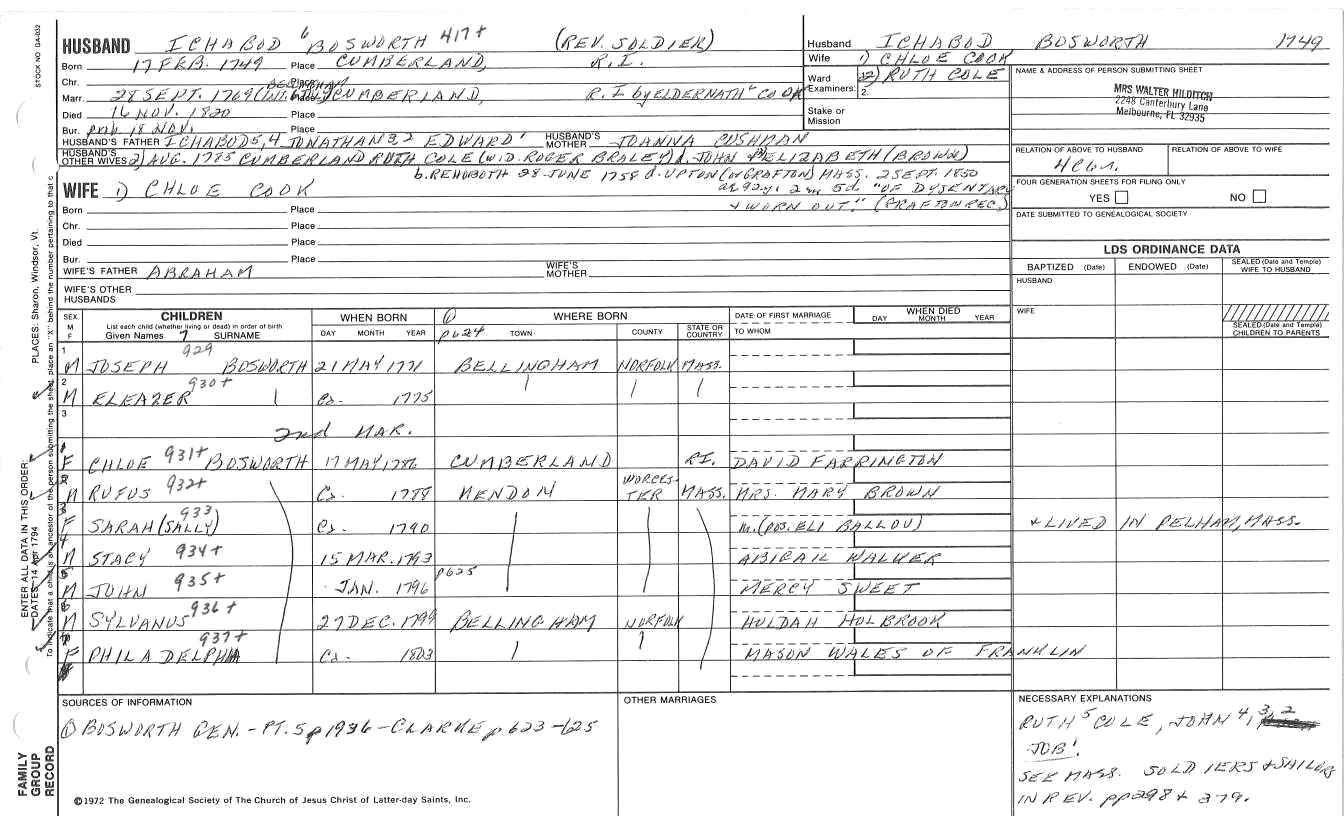 STOCK NO GA-032
HUSBAND ICHABOD 6 BOSWORTH 417+ (REV. SOLDIER)
Born 17 FEB. 1749 Place CUMBERLAND, R.I.
Chr. Place BELLINGHAM
Marr. 28 SEPT. 1769 (INT. Place CUMBERLAND, R.I by ELDER NATH'L COOK
Died 16 NOV. 1820 Place
Bur. prob 18 NOV. Place
HUSBAND'S FATHER ICHABOD 5, 4 JONATHAN 3, 2 EDWARD 1 HUSBAND'S MOTHER JOANNA CUSHMAN
HUSBAND'S OTHER WIVES 2) AUG. 1785 CUMBERLAND RUTH COLE (WID. ROGER BRALEY) d. JOHN & ELIZABETH (BROWN)
b. REHOBOTH 28 JUNE 1758 d. UPTON (or GRAFTON) MASS. 2 SEPT. 1850
ae 92y. 2m 5d. "OF DYSENTARY
& WORN OUT." (GRAFTON REC.)
WIFE 1) CHLOE COOK
Born Place
Chr. Place
Died Place
Bur. Place
WIFE'S FATHER ABRAHAM WIFE'S MOTHER
WIFE'S OTHER HUSBANDS
Husband ICHABOD BOSWORTH 1749
Wife 1) CHLOE COOK
Ward 2) RUTH COLE
Examiners: 2.
Stake or Mission
NAME & ADDRESS OF PERSON SUBMITTING SHEET
MRS WALTER HILDITCH
2248 Canterbury Lane
Melbourne, FL 32935
RELATION OF ABOVE TO HUSBAND RELATION OF ABOVE TO WIFE
FOUR GENERATION SHEETS FOR FILING ONLY
YES NO
DATE SUBMITTED TO GENEALOGICAL SOCIETY
LDS ORDINANCE DATA
BAPTIZED (Date) ENDOWED (Date) SEALED (Date and Temple) WIFE TO HUSBAND
HUSBAND
WIFE
SEALED (Date and Temple) CHILDREN TO PARENTS
SEX M F CHILDREN WHEN BORN ① WHERE BORN DATE OF FIRST MARRIAGE WHEN DIED
List each child (whether living or dead) in order of birth
Given Names 7 SURNAME DAY MONTH YEAR p624 TOWN COUNTY STATE OR COUNTRY TO WHOM DAY MONTH YEAR
1 M JOSEPH 929 BOSWORTH 21 MAY 1771 BELLINGHAM NORFOLK MASS.
2 M ELEAZER 930+ Ca. 1775
3
2nd MAR.
1 F CHLOE 931+ BOSWORTH 17 MAY 1786 CUMBERLAND R.I. DAVID FARRINGTON
2 M RUFUS 932+ Ca. 1788 MENDON WORCESTER MASS. MRS. MARY BROWN
3 F SARAH (SALLY) 933 Ca. 1790 m. (pos. ELI BALLOU) & LIVED IN PELHAM, MASS.
4 M STACY 934+ 15 MAR. 1793 ABIGAIL WALKER
5 M JOHN 935+ JAN. 1796 p625 MERCY SWEET
6 M SYLVANUS 936+ 27 DEC. 1799 BELLINGHAM NORFOLK HULDAH HOLBROOK
7 F PHILADELPHIA 937+ Ca. 1803 MASON WALES OF FRANKLIN
SOURCES OF INFORMATION
① BOSWORTH GEN. - PT. 5 p 1936 - CLARKE p 623-625
OTHER MARRIAGES
NECESSARY EXPLANATIONS
RUTH 5 COLE, JOHN 4, 3, 2
JOB 1.
SEE MASS. SOLDIERS & SAILORS
IN REV. pp 298 & 379.
©1972 The Genealogical Society of The Church of Jesus Christ of Latter-day Saints, Inc.
FAMILY GROUP RECORD
ENTER ALL DATA IN THIS ORDER:
DATES: 14 Apr 1794
PLACES: Sharon, Windsor, Vt.
To indicate that a child is an ancestor of the person submitting the sheet, place an "X" behind the number pertaining to that c